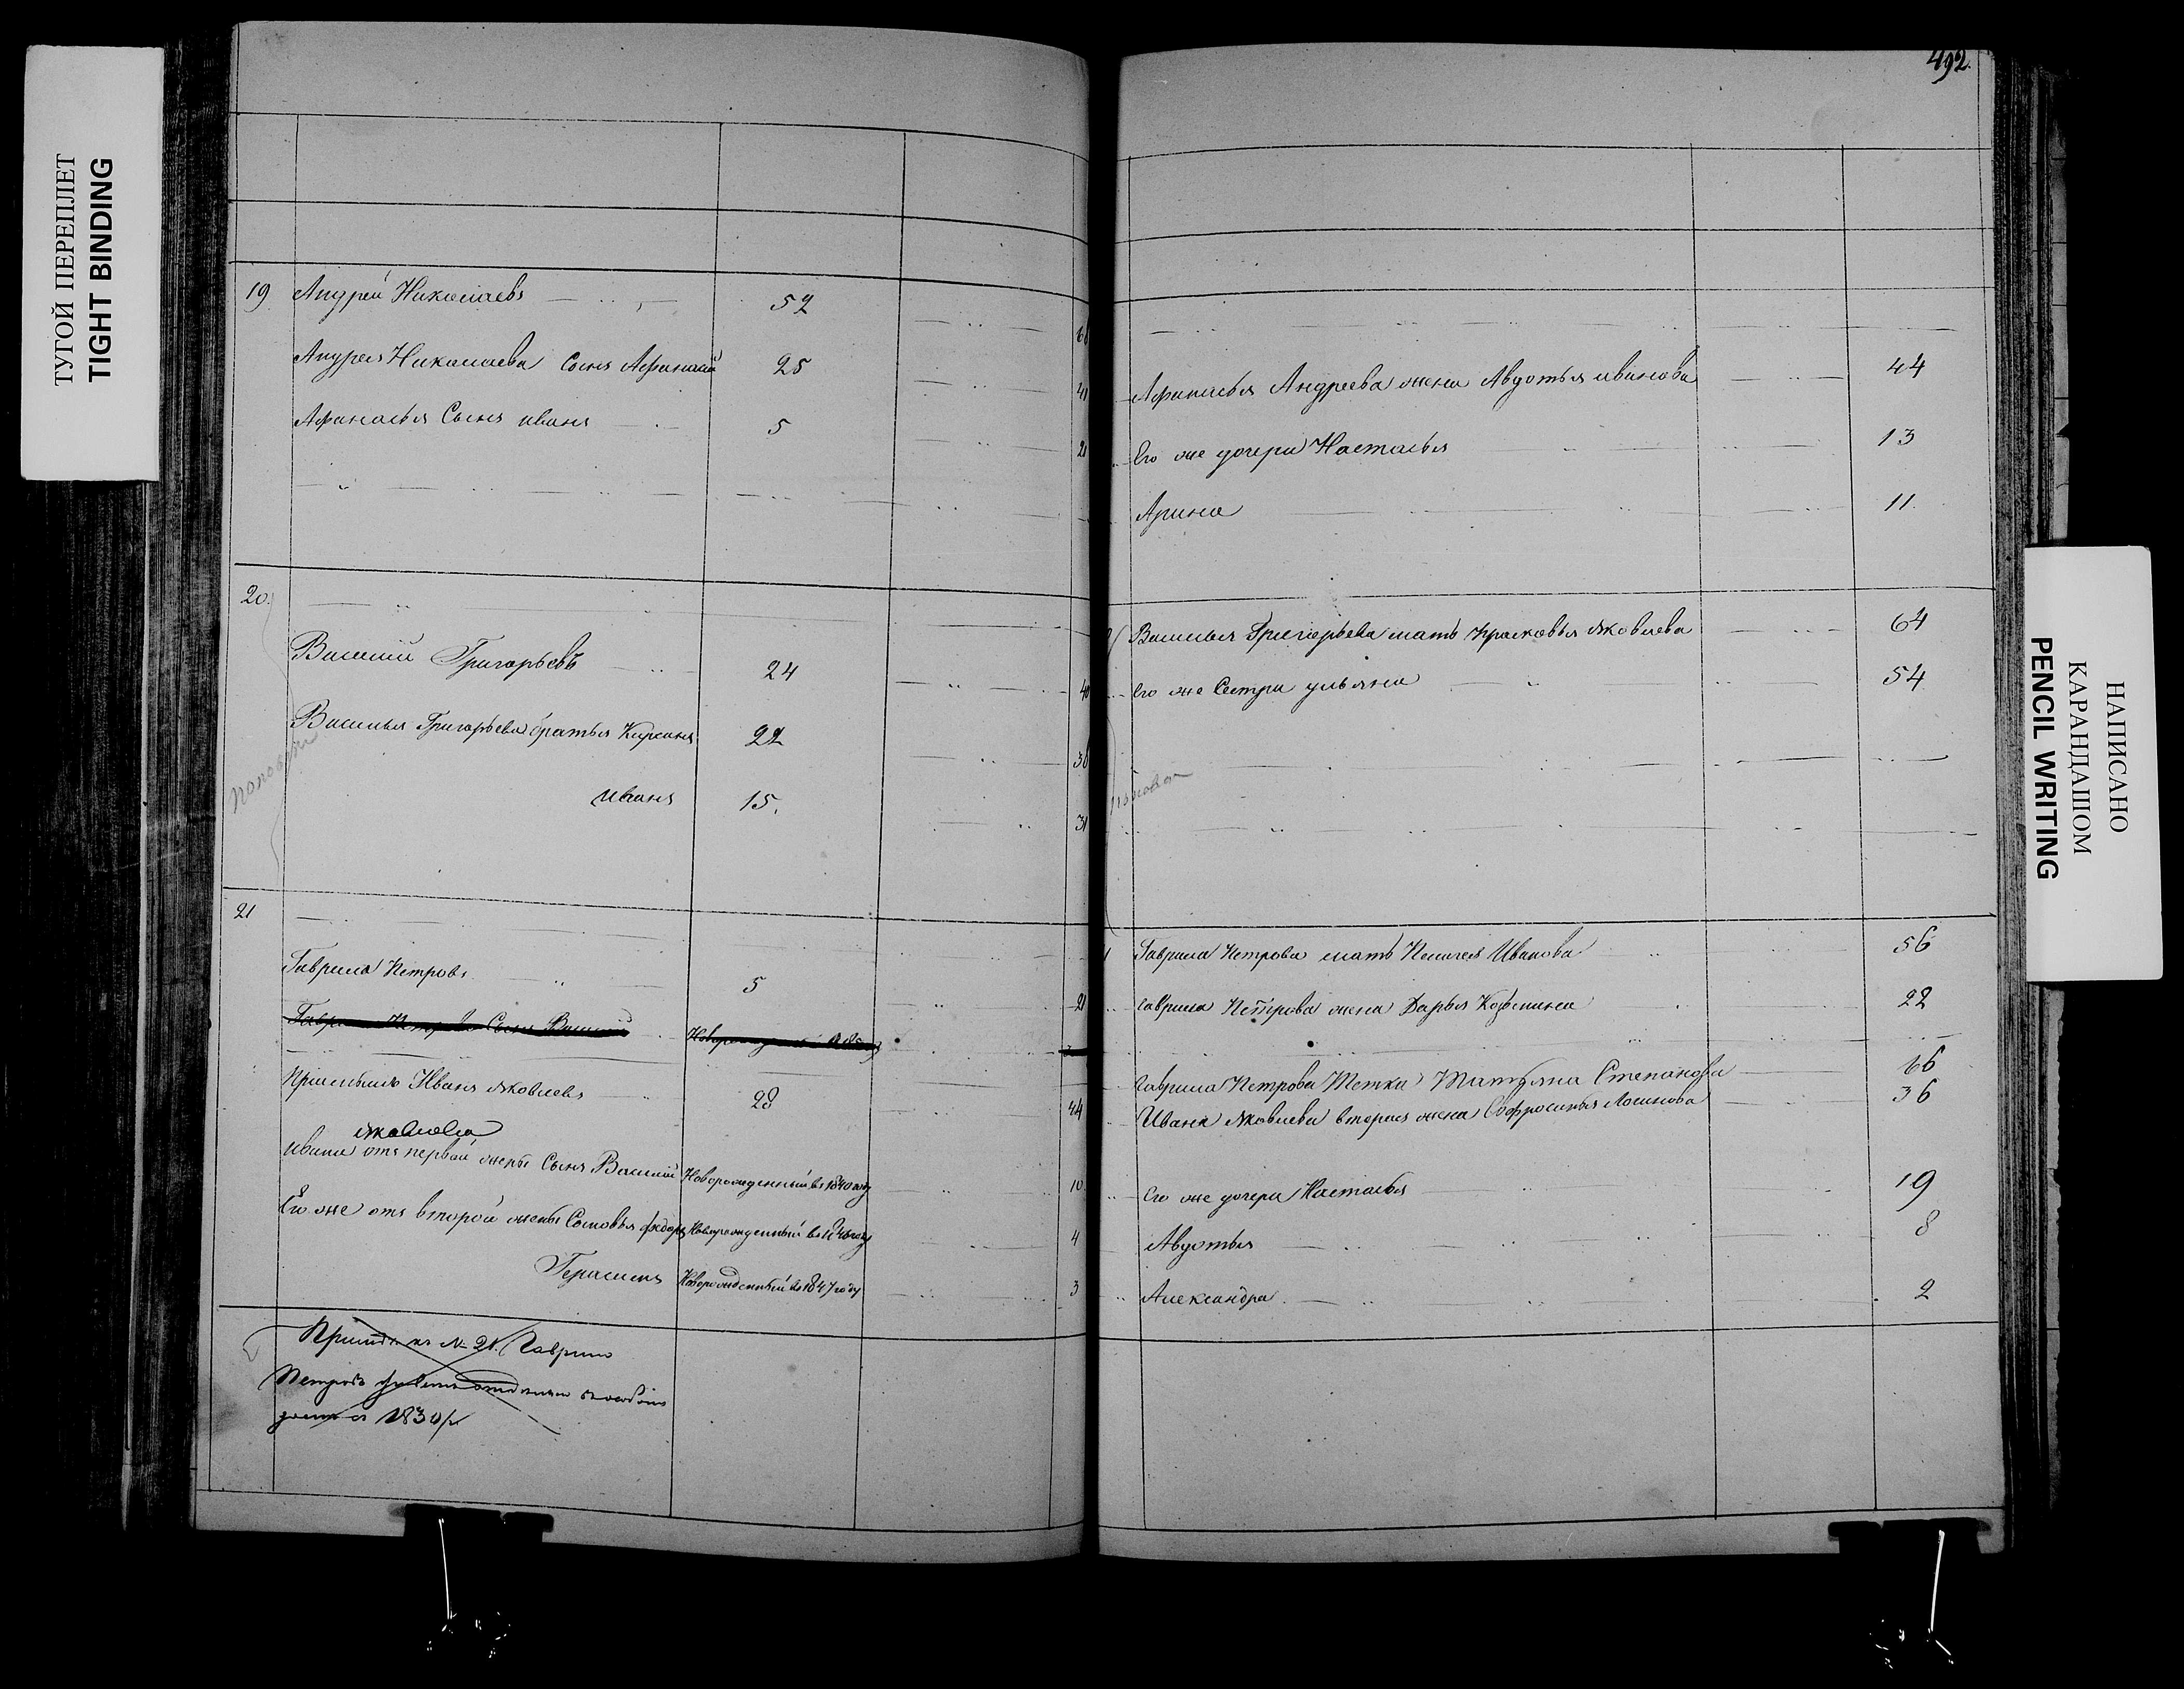 ТУГОЙ ПЕРЕПЛЕТ
TIGHT BINDING
19 Андрей Николаевъ 52 68
Андрея Николаева Сынъ Афанасій 25 41
Афанасья Сынъ иванъ 5 21
20.
Василій Григорьевъ 24 40
Василья Григорьева братья Кирсанъ 22 38
иванъ 15. 31
21
Гаврила Петровъ 5 21
Гаврила Петрова Сынъ Василій
Пріемышъ Иванъ Яковлевъ 28 44
Яковлева
ивана отъ первой жены Сынъ Василій Новорожденный въ 1840 году 10
Его же отъ второй жены Сыновья федоръ Новорожденный въ 1846 году 4
Герасимъ Новорожденный въ 1847 году 3
къ № 21. Гаврило
Петровъ
съ 1830/
492.
Афанасья Андреева жена Авдотья иванова 44
Его же дочери Настасья 13
Арина 11.
Василья Григорьева мать Прасковья Яковлева 64
Его же Сестра ульяна 54
Гаврила Петрова мать Пелагея Иванова 56
Гаврила Петрова жена Дарья Козмина 22
Гаврила Петрова Тетка Татьяна Степанова 66
Ивана Яковлева вторая жена Евфросинья Логинова 36
Его же дочери Настасья 19
Авдотья 8
Александра 2
НАПИСАНО
КАРАНДАШОМ
PENCIL WRITING